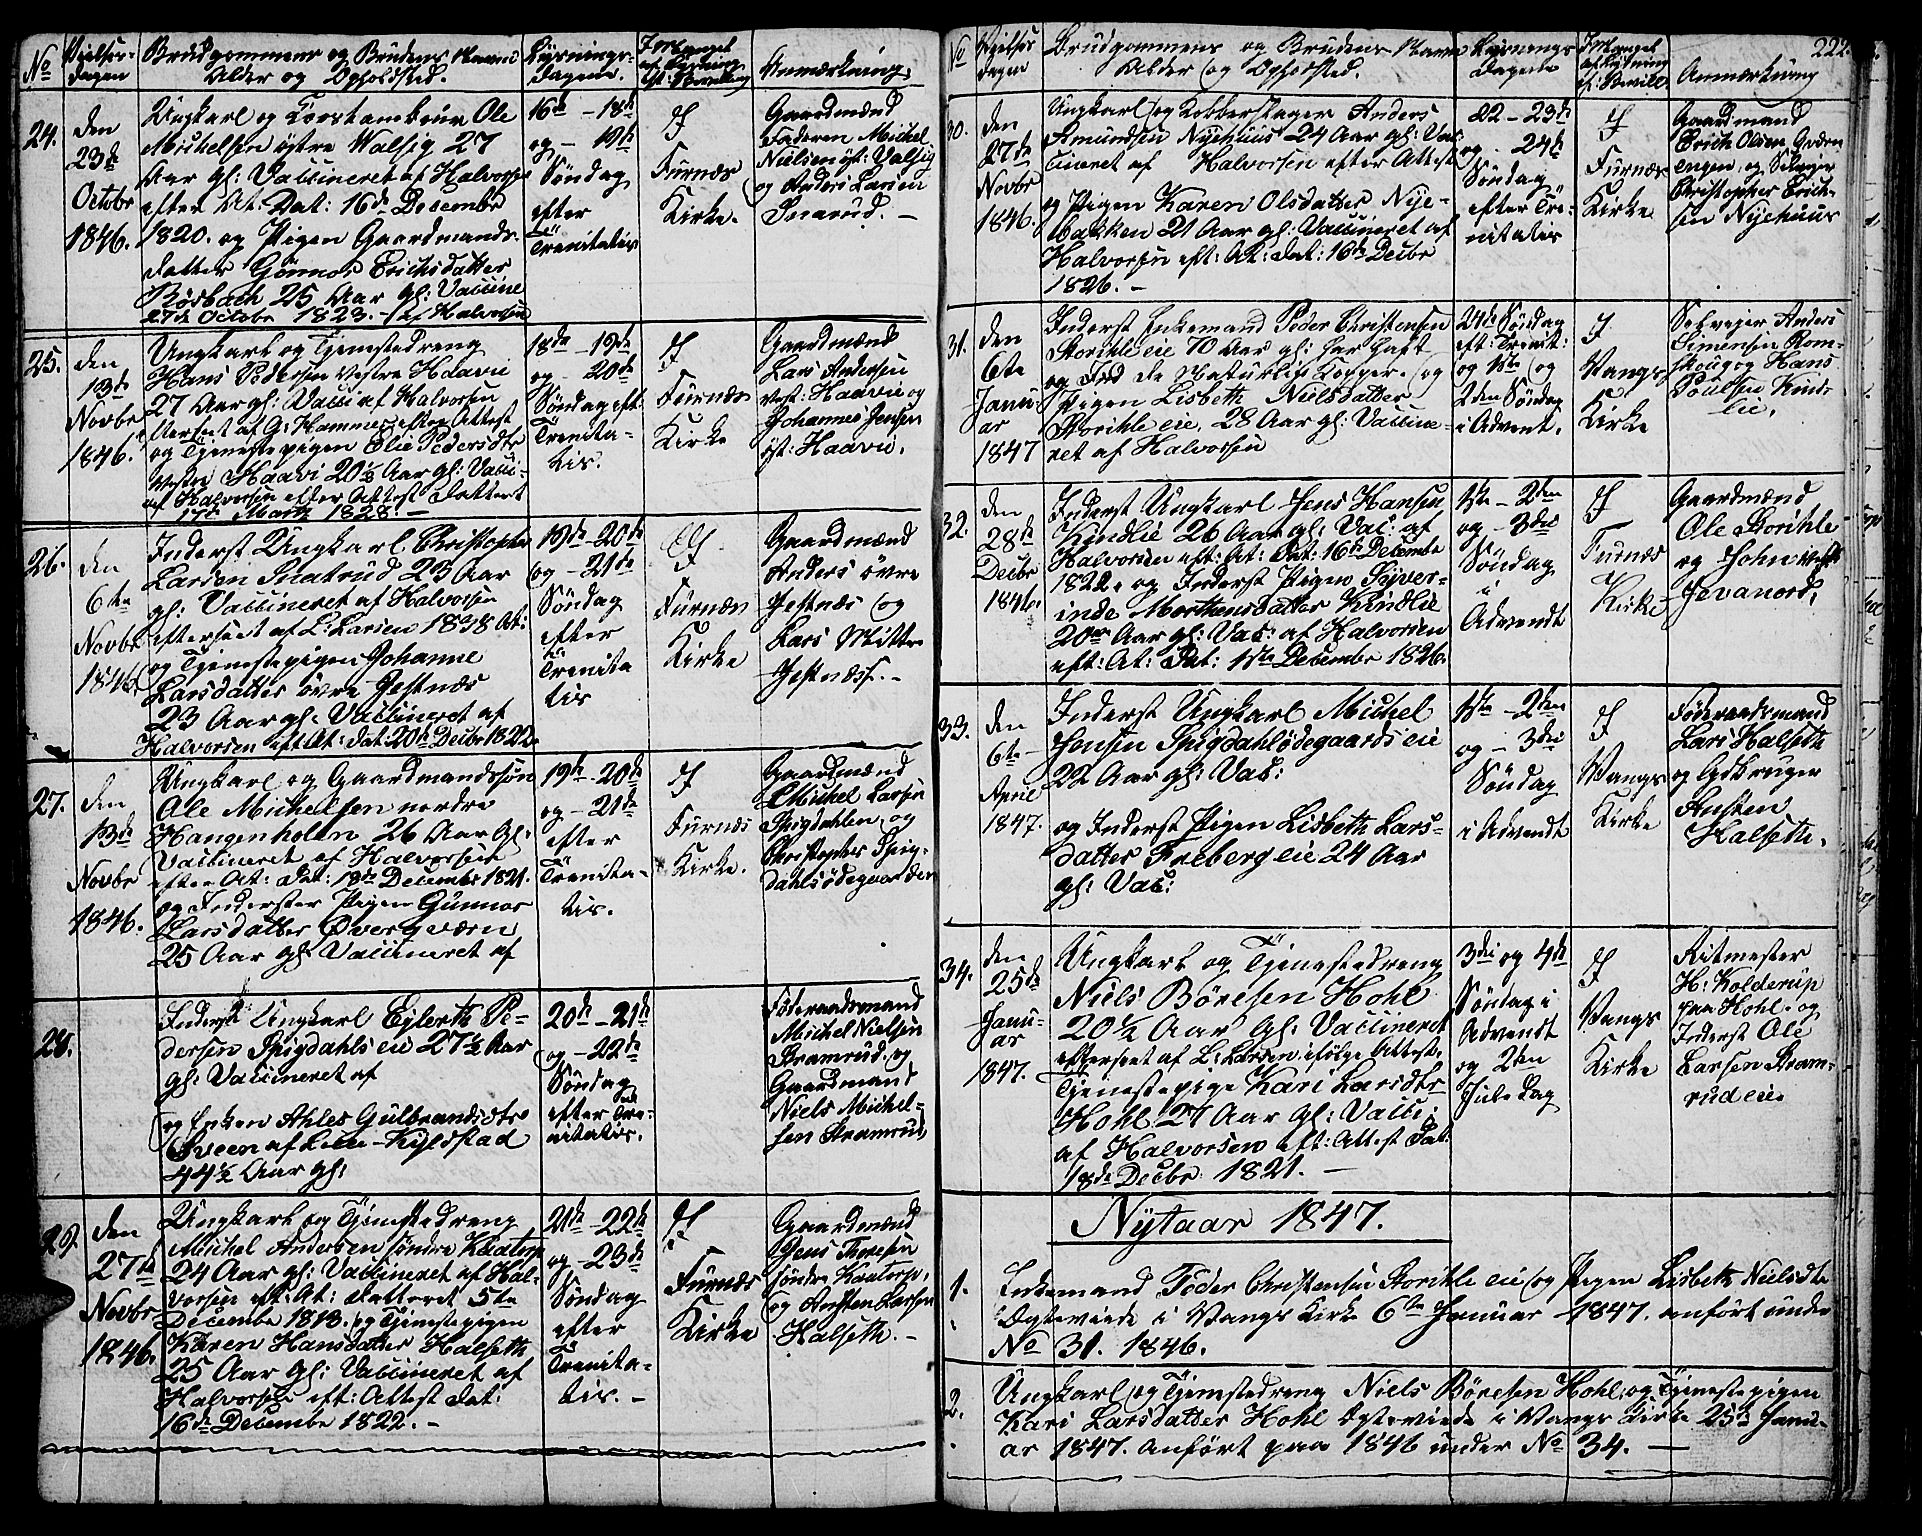 No
Vielses-
dagen
Brudgommens og Brudens Navne
Alder og Opholdsted.
Lysnings-
dagene.
I Mangel
af Lysning
Anmærkning
24.
den
23de
Octobr
1846.
Ungkarl og Ole
Michelsen østre Walsig 27
Aar gl: Vaccineret af Halvorsen
efter At: Dat: 16de Decembr
1820. og Pigen Gaardmands-
datter Gønnor Erichsdatter
Rødbach 25 Aar gl: Vaccine
27de Octobr 1823. – af Halvorsen
16de – 18de
og – 19de
Søndag
efter
Trenitatis
I
Furnæs
Kirke.
Gaardmænd
Faderen Michel
Nielsen øst: Valsig
og Anders Larsen
Snarud. –
25.
den
13de
Novbr
1846.
Ungkarl og Tjenestedreng
Hans Pedersen vestre Haavie
27 Aar gl: Vacci af Halvorsen
efter Attest
og Tjenestepigen Elie Pedersdtr
vestre Haavi 20½ Aar gl: Vacci-
af Halvorsen efter Attest datteret
17de Marts 1828 –
18de – 19de
og – 20de
Søndag eft
Trenita-
tis.
I
Furnæs
Kirke
Gaardmænd
Lars Andersen
vest: Haavie og
Johannes Jensen
øst: Haavie.
26.
den
6te
Novbr
1846
Inderst Ungkarl Christopher
Larsen Snatrud 23 Aar
gl: Vaccineret af Halvorsen
efterseet af L: Larsen 1838 At:
og Tjenestepigen Johanne
Larsdatter øvre Jestnæs
23 Aar gl: Vaccineret af
Halvorsen eft At: dat: 20de Decbr 1822
19de – 20de
og – 21de
Søndag
efter
Trenita
tis
I
Furnæs
Kirke
Gaardmænd
Anders øvre
Jestnæs og
Lars Mittre
Jestnæss. –
27.
den
13de
Novbr
1846.
Ungkarl og Gaardmandssøn
Ole Michelsen nordre
Hangenholm 26 Aar gl:
Vaccineret af Halvorsen
efter At: Dat: 18de Decembr 1821.
og Inderster Pigen Gunnor
Larsdatter Overqværn
25 Aar gl: Vaccineret af
19de – 20de
og – 21de
efter
Trenita-
tis.
I
Furnæs
Kirke.
Gaardmænd
Michel Larsen
Spigdahlen og
Christopher Spig-
dahlsødegaarden
28.
Inderst Ungkarl Eylerth Pe-
dersen Spigdahls eie 27½ Aar
gl: Vaccineret af
og Enken Ahles Gulbrandsdtr
Sveen af Kyldstad
44½ Aar gl:
20de – 21de
og – 22de
Søndag
efter Tre-
nitatis.
Føderaadsmand
Michel Nielsen
Stramrud og
Gaardmand
Niels Michel-
sen Stramrud
29.
den
27de
Novbr
1846.
Ungkarl og Tjenestedreng
Michel Andersen søndre Kaatorp
24 Aar gl: Vaccineret af Hal-
vorsen eft: At: datteret 5te
Decembr 1818. og Tjenestepigen
Karen Hansdatter Halseth
25 Aar gl: Vaccineret af
Halvorsen eft: Attest dat:
16de Decembr 1822. –
21de – 22de
og – 23de
Søndag
efter
Trenita-
tis. –
I
Furnæs
Kirke
Gaardmænd
Jens Thoresen
søndre Kaatorp,
og Austen Larsen
Halseth. –
222.
No
Vielses
dagen
Brudgommens og Brudens Navne
Alder og Opholdsted.
Lysnings
Dagene
I Mangel
af Lysning
Anmærkning
30.
den
27de
Novbr
1846.
Ungkarl og Kobberslager Anders
Amundsen Nyehuus 24 Aar gl: Vac
cineret af Halvorsen efter Attest
og Pigen Karen Olsdatter Nye-
bakken 21 Aar gl: Vaccineret af
Halvorsen eft: At: dat: 16de Decbr
1826. –
22 – 23de
og – 24de
Søndag
efter Tre-
nitatis
I
Furnæs
Kirke
Gaardmand
Erich Olsen
engen og Selveier
Christopher Erich-
sen Nyehuus
31.
den
6te
Janu-
ar
1847
Inderst Enkemand Peder Christensen
Storihle eie 70 Aar gl: har haft
og
Pigen Lisbeth Nielsdatter
Storihle eie, 28 Aar gl: Vaccine-
ret af Halvorsen
24de Søndag
eft: Trenit:
og 1ste og
2den Søndag
i Advent.
I
Vangs
Kirke
Selveier Anders
Simensen Rom-
skoug og Hans
Poulsen Kind-
lie.
32.
den
28de
Decbr
1846.
Inderst Ungkarl Jens Hansen
Kindlie 26 Aar gl: Vac: af
Halvorsen eft: At: Dat: 16de Decembr
1822. og Inderst Pigen Syver-
inde Morthensdatter Kindlie
20 Aar gl: Vac: af Halvorsen
eft: At: Dat: 1ste Decembr 1826.
1ste – 2den
og – 3die
Søndag
i
Advendt
I
Furnæs
Kirke
Gaardmænd
Ole Storihle
og John
Jevanord.
33.
den
6te –
April
1847.
Inderst Ungkarl Michel
Jensen Spigdahlødegaards eie
22 Aar gl: Vac:
og Inderst Pigen Lisbeth Lars-
datter Freberg eie 24 Aar
gl: Vac:
1ste – 2den
og – 3die
Søndag
i Advendt
I
Vangs
Kirke
Føderaadsmand
Lars Halseth
og Gdbruger
Austen
Halseth.
34.
den
25de
Janu-
ar
1847.
Ungkarl og Tjenestedreng
Niels Børesen Hohl
20½ Aar gl: Vaccineret
efterseet af L: Larsen ifølge Attest.
Tjenestepige Kari Larsdtr
Hohl 27 Aar gl: Vacci:
af Halvorsen eft: Attest Dat:
18de Decbr 1821. –
3die og 4de
Søndag i
Advendt
og 2den
Juledag
I
Vangs
Kirke
Ritmester
H: Kolderup
paa Hohl. og
Inderst Ole
Larsen Stram-
rud eie
Nytaar 1847.
1.
Enkemand Peder Christensen Storihle eie og Pigen Lisbeth Nielsdtr
Ægteviede i Vangs Kirke 6te Januar 1847. anført under
No 31. 1846.
2.
Ungkarl og Tjenestedreng Niels Børesen Hohl og Tjenestepigen
Kari Larsdatter Hohl Ægteviede i Vangs Kirke 25de Janu-
ar 1847. anført paa 1846 under No 34. –